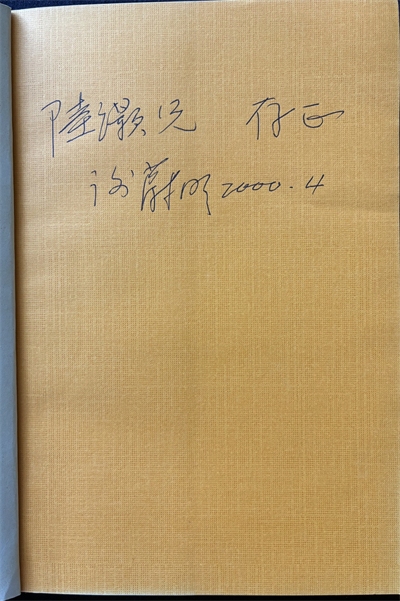 陸灏兄 存正
谢蔚明 2000.4